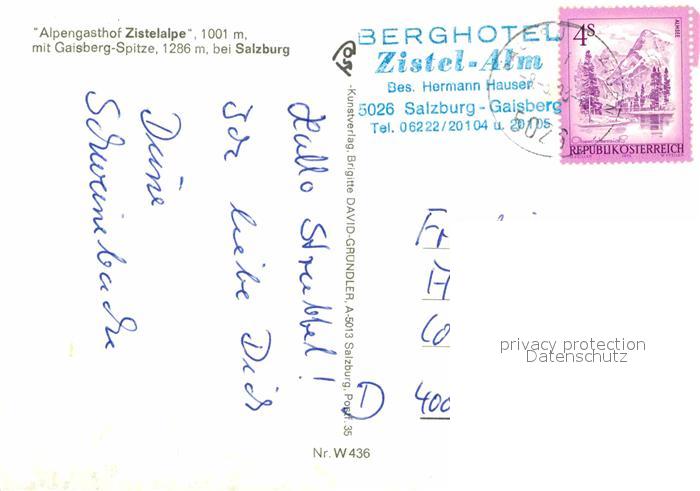 "Alpengasthof Zistelalpe", 1001 m,
mit Gaisberg-Spitze, 1286 m, bei Salzburg
BERGHOTEL
Zistel-Alm
Bes. Hermann Hauser
5026 Salzburg-Gaisberg
Tel. 06222/20104 u. 20105
4S
ALMSEE
REPUBLIK ÖSTERREICH
Cosy
-Kunstverlag, Brigitte DAVID-GRÜNDLER, A-5013 Salzburg, Postf. 35
Hallo Strubbel!
Ich liebe Dich
Deine
Schweinebacke
D
400
privacy protection
Datenschutz
Nr. W 436